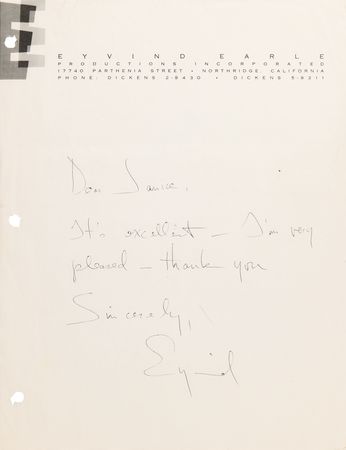 EYVIND EARLE
PRODUCTIONS INCORPORATED
17740 PARTHENIA STREET • NORTHRIDGE, CALIFORNIA
PHONE: DICKENS 2-8430 • DICKENS 5-8211
Dear Janice,
It's excellent – I'm very
pleased – thank you
Sincerely,
Eyvind